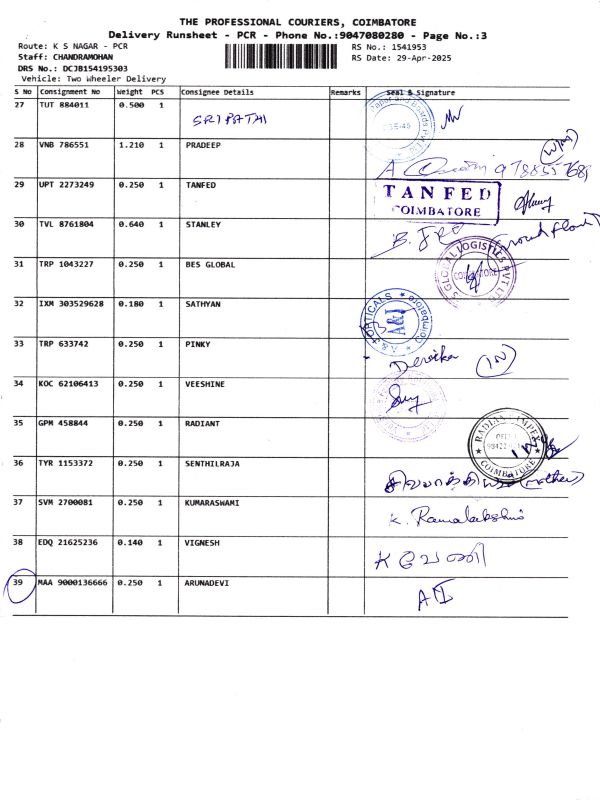 THE PROFESSIONAL COURIERS, COIMBATORE
Delivery Runsheet - PCR - Phone No.:9047080280 - Page No.:3
Route: K S NAGAR - PCR
RS No.: 1541953
Staff: CHANDRAMOHAN
RS Date: 29-Apr-2025
DRS No.: DCJB154195303
Vehicle: Two Wheeler Delivery
S No Consignment No Weight PCS Consignee Details Remarks Seal & Signature
27 TUT 884011 0.500 1 SRIPATHI
28 VNB 786551 1.210 1 PRADEEP
29 UPT 2273249 0.250 1 TANFED TANFED
COIMBATORE
30 TVL 8761804 0.640 1 STANLEY
31 TRP 1043227 0.250 1 BES GLOBAL GLOBAL LOGISTICS PVT LTD COIMBATORE
32 IXM 303529628 0.180 1 SATHYAN A&J Coimbatore
33 TRP 633742 0.250 1 PINKY (IN)
34 KOC 62106413 0.250 1 VEESHINE
35 GPM 458844 0.250 1 RADIANT COIMBATORE
36 TYR 1153372 0.250 1 SENTHILRAJA (mother)
37 SVM 2700081 0.250 1 KUMARASWAMI K. Ramalakshmi
38 EDQ 21625236 0.140 1 VIGNESH K வேணி
39 MAA 9000136666 0.250 1 ARUNADEVI